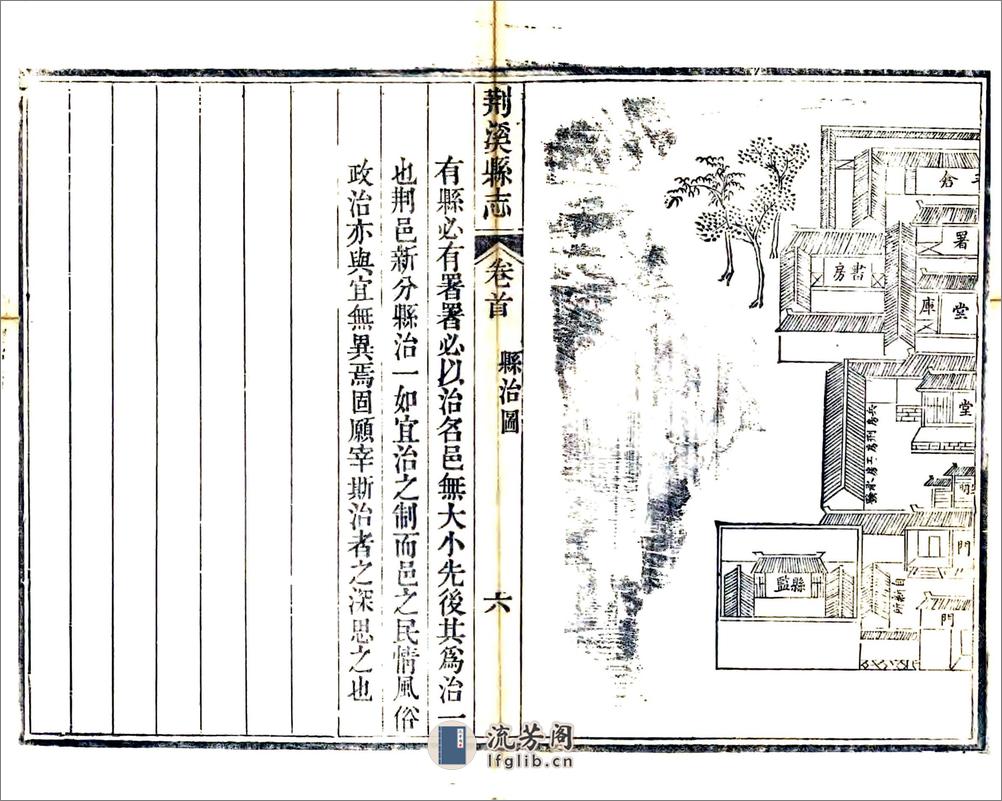 倉
署
書房
堂
庫
堂
兵房刑房工房承發
門
門
縣監
自新所
門
荆溪縣志
卷首
縣治圖
六
有縣必有署署必以治名邑無大小先後其爲治一
也荆邑新分縣治一如宜治之制而邑之民情風俗
政治亦與宜無異焉固願宰斯治者之深思之也
流芳阁
lfglib.cn